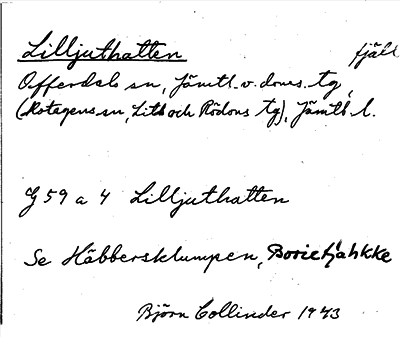 Lilljuthatten fjäll
Offerdals sn, Jämtl. v. doms. tg,
(Rotagens sn, Lits och Rödöns tg), Jämtl l.
59 a 4 Lilljuthatten
Se Häbbersklumpen, Borietjahkke
Björn Collinder 1943